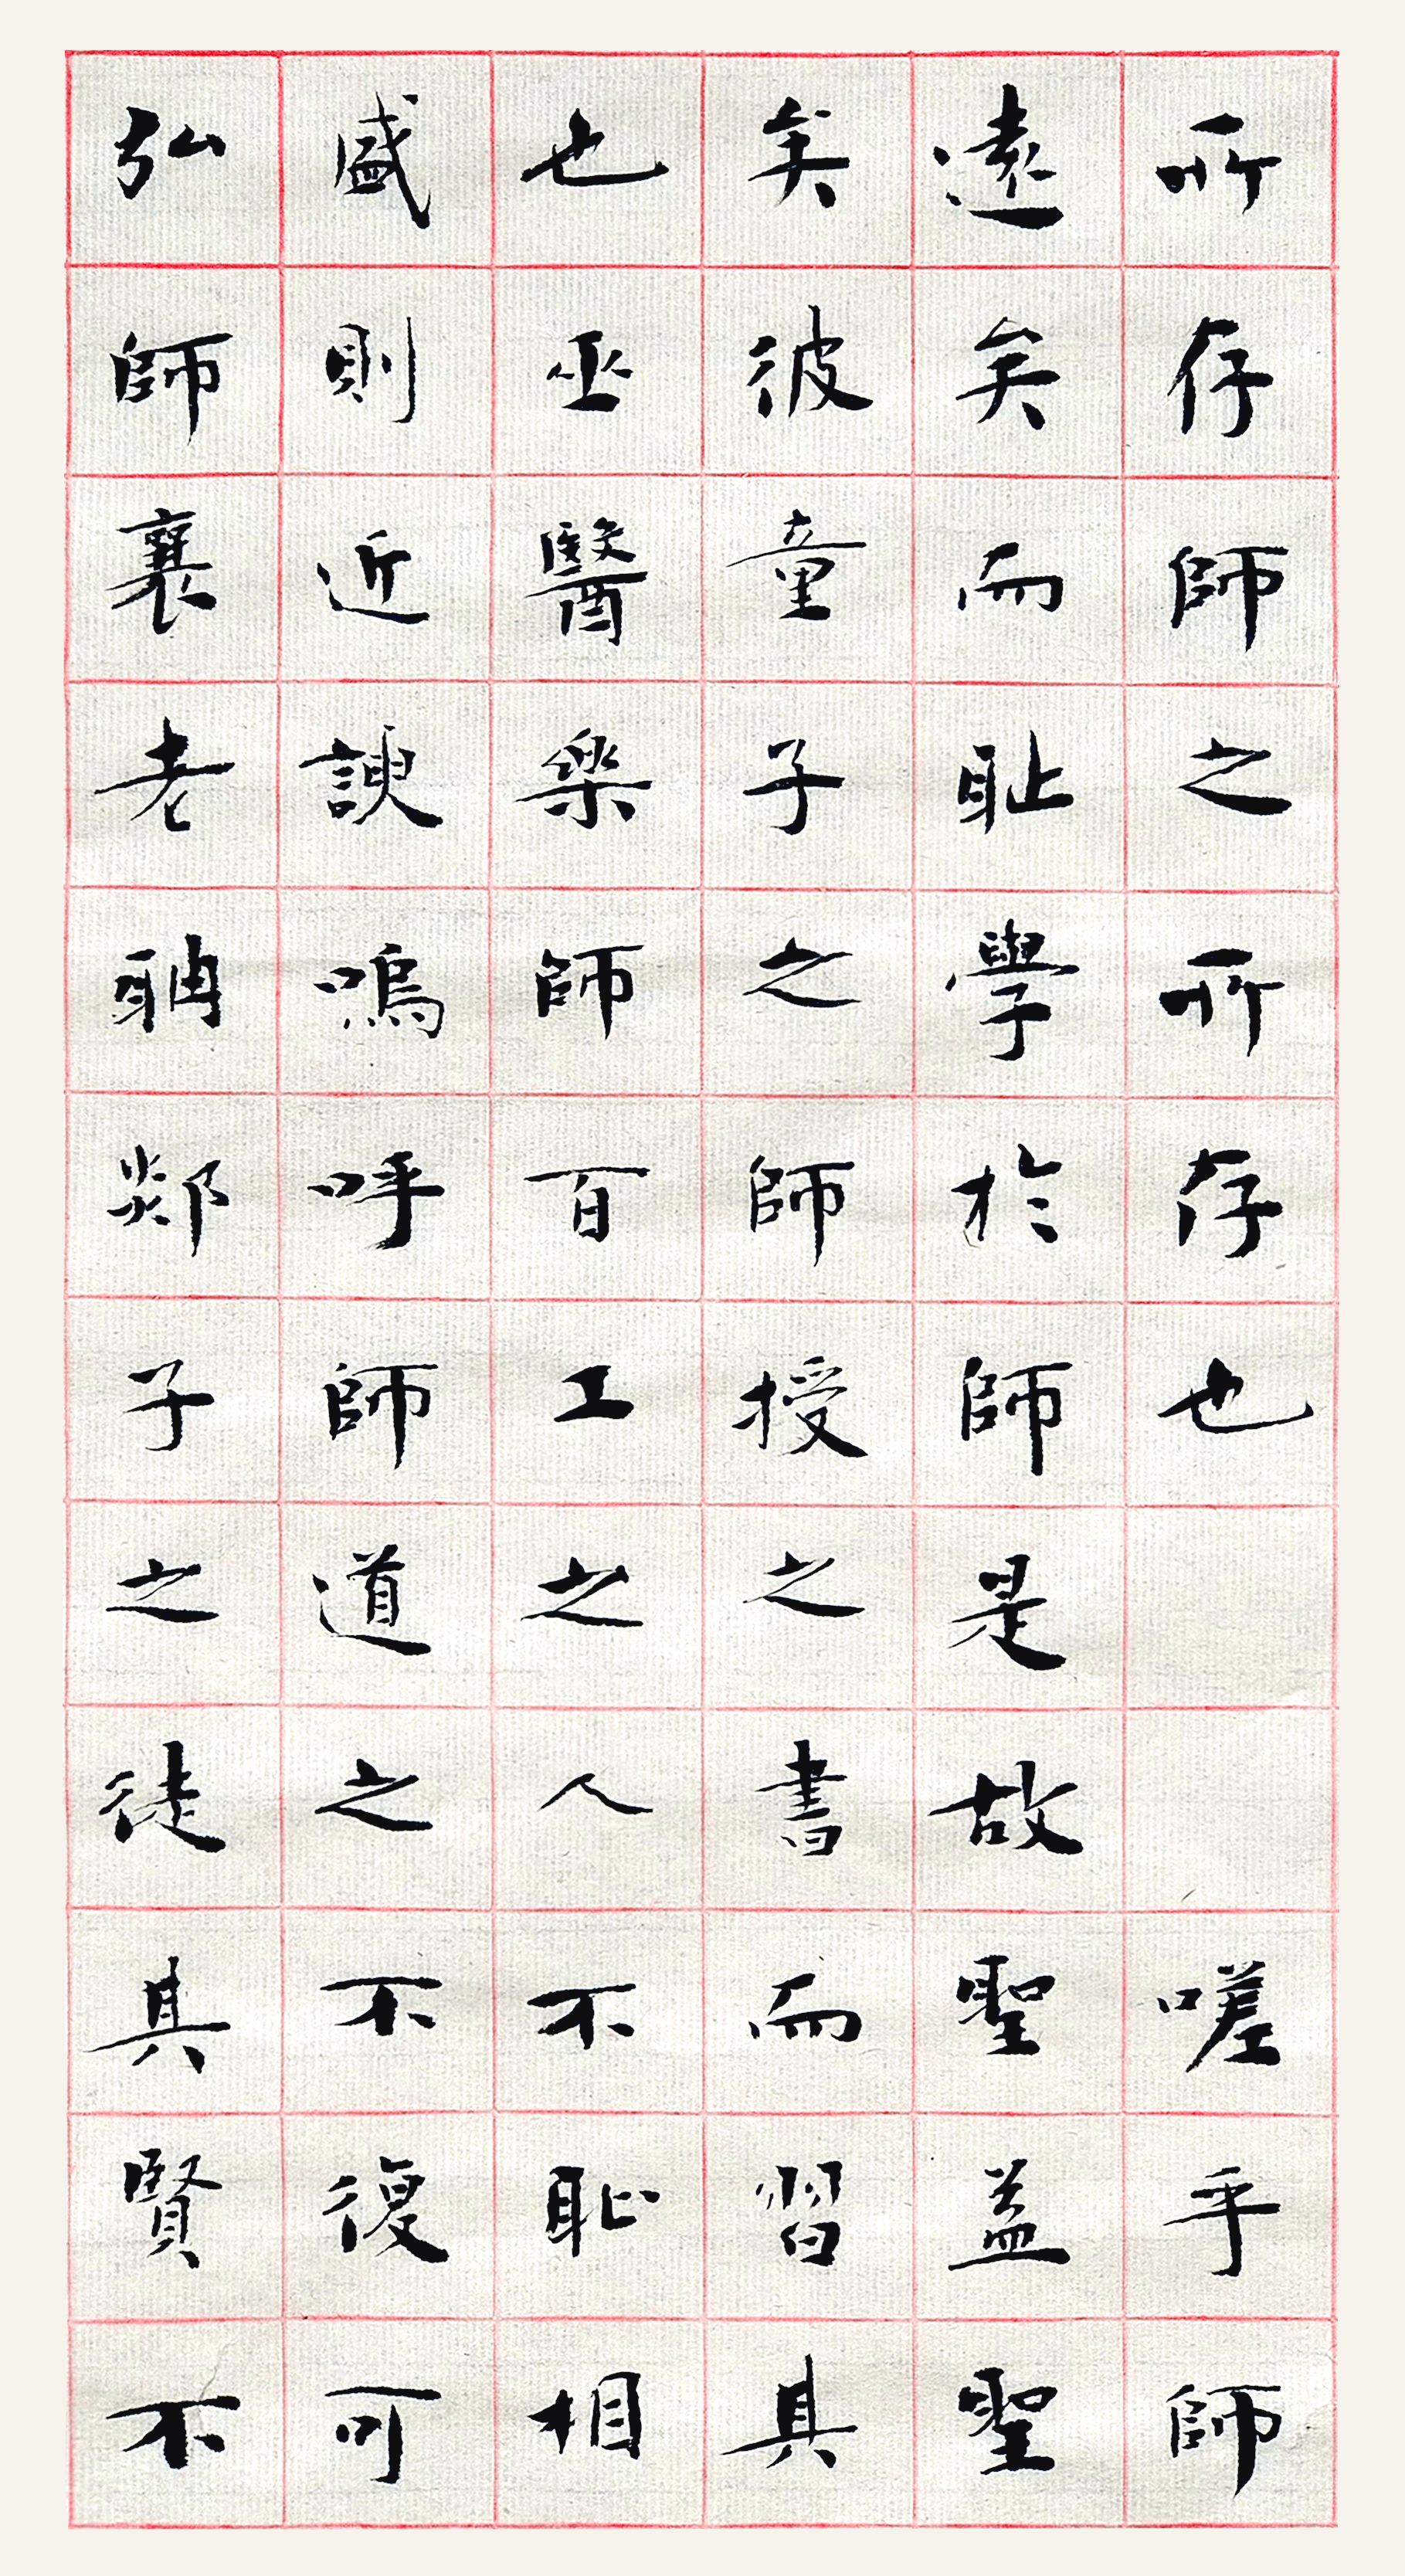 所存師之所存也嗟乎師
遠矣而耻學於師是故聖益聖
矣彼童子之師授之書而習其
也巫醫樂師百工之人不恥相
盛則近諛嗚呼師道之不復可
弘師襄老聃郯子之徒其賢不